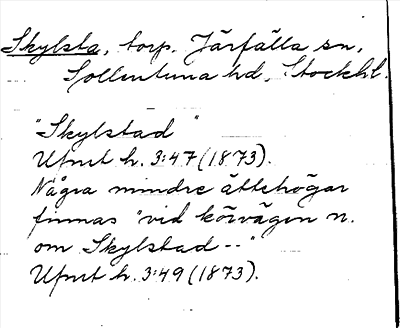 Skylsta, torp. Järfälla sn,
Sollentuna hd, Stockh.l.
"Skylstad"
Ufmt h. 3:47 (1873).
Några mindre ättehögar
finnas "vid körvägen n.
om Skylstad--"
Ufmt h. 3:49 (1873).